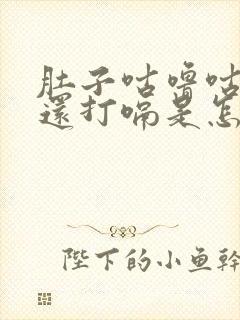 肚子咕嚕咕
還打嗝是怎
陛下的小魚幹